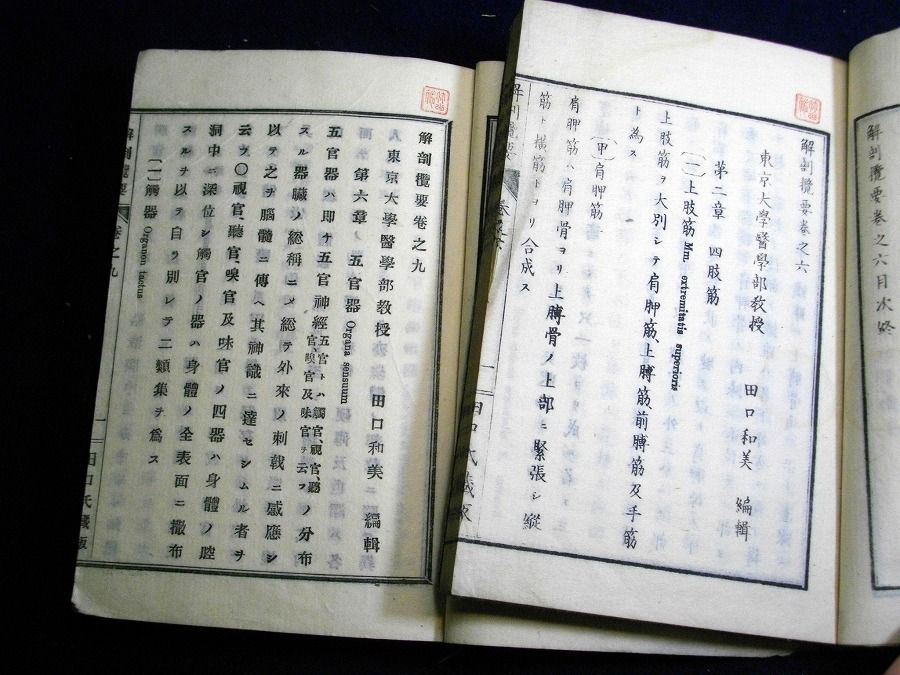 解剖攬要卷之六目次終
解剖攬要卷之六
東京大學醫學部教授 田口和美 編輯
第二章 四肢筋
(一)上肢筋 Mm. extremitatis superioris
上肢筋ヲ大別シテ肩胛筋、上膊筋、前膊筋及手筋
ト為ス
(甲)肩胛筋
肩胛筋ハ肩胛骨ヨリ上膊骨ノ上部ニ緊張シ縱
筋ト橫筋トヨリ合成ス
解剖攬要卷之九
東京大學醫學部教授 田口和美 編輯
第六章 五官器 Organa sensuum
五官器ハ即チ五官神經五官トハ觸官、視官、聽官、嗅官及味官ヲ云フノ分布
スル器臟ノ総稱ニメ総テ外來ノ刺戟ニ感應シ
以テ之ヲ腦髓ニ傳ヘ其神識ニ達セシムル者ヲ
云フ〇視官、聽官、嗅官及味官ノ四器ハ身體ノ腔
洞中ニ深位シ觸官ノ器ハ身體ノ全表面ニ撒布
スルヲ以テ自ラ別レテ二類集ヲ爲ス
(一)觸器 Organon tactus
解剖攬要 卷之九 一 田口氏藏版